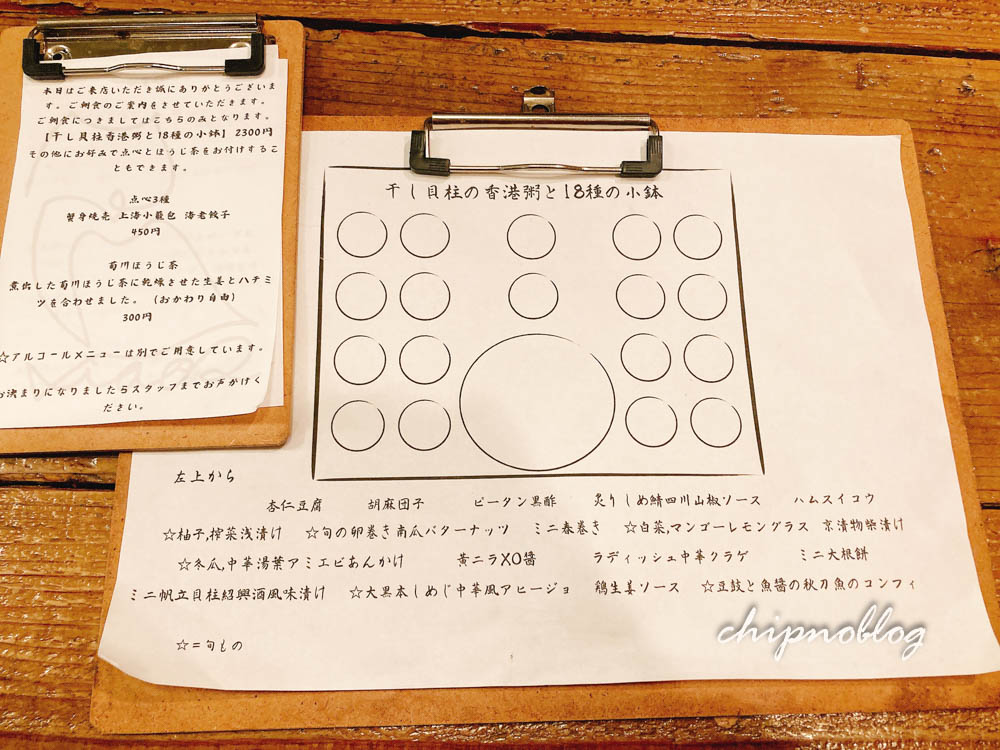 本日はご来店いただき誠にありがとうございま
す。ご朝食のご案内をさせていただきます。
ご朝食につきましてはこちらのみとなります。
【干し貝柱香港粥と18種の小鉢】 2300円
その他にお好みで点心とほうじ茶をお付けするこ
ともできます。
点心3種
蟹身焼売 上海小籠包 海老餃子
450円
菊川ほうじ茶
煮出した菊川ほうじ茶に乾燥させた生姜とハチミ
ツを合わせました。 (おかわり自由)
300円
☆アルコールメニューは別でご用意しています。
お決まりになりましたらスタッフまでお声がけく
ださい。
干し貝柱の香港粥と18種の小鉢
左上から
杏仁豆腐 胡麻団子 ピータン黒酢 炙りしめ鯖四川山椒ソース ハムスイコウ
☆柚子,搾菜浅漬け ☆旬の卵巻き南瓜バターナッツ ミニ春巻き ☆白菜,マンゴーレモングラス 京漬物柴漬け
☆冬瓜,中華湯葉アミエビあんかけ 黄ニラXO醤 ラディッシュ中華クラゲ ミニ大根餅
ミニ帆立貝柱紹興酒風味漬け ☆大黒本しめじ中華風アヒージョ 鶏生姜ソース ☆豆豉と魚醤の秋刀魚のコンフィ
☆=旬もの
chipnoblog